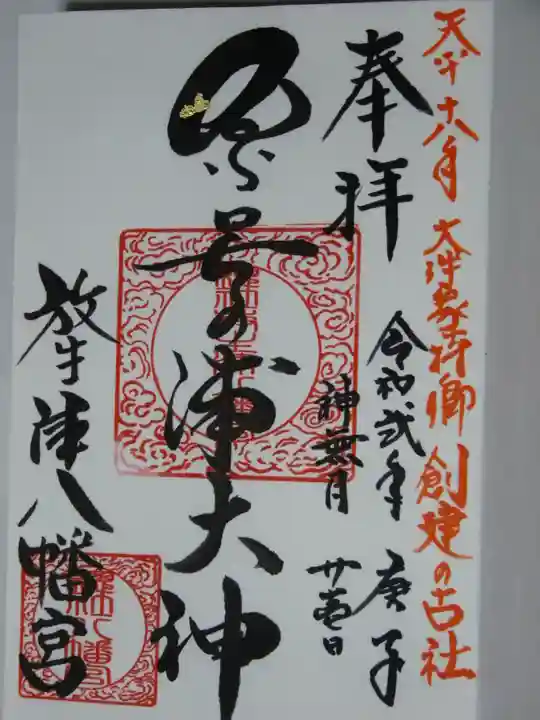 天平十八年 大伴家持卿 創建の古社
奉拝
令和弐年 庚子
神無月 廿壱日
奈呉の浦大神
放生津八幡宮